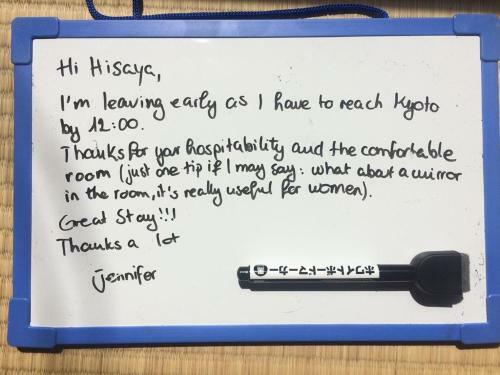 Hi Hisaya,
I'm leaving early as I have to reach Kyoto
by 12:00.
Thanks for your hospitability and the comfortable
room (just one tip if I may say: what about a mirror
in the room, it's really useful for women).
Great Stay!!!
Thanks a lot
jennifer
ホワイトボードマーカー